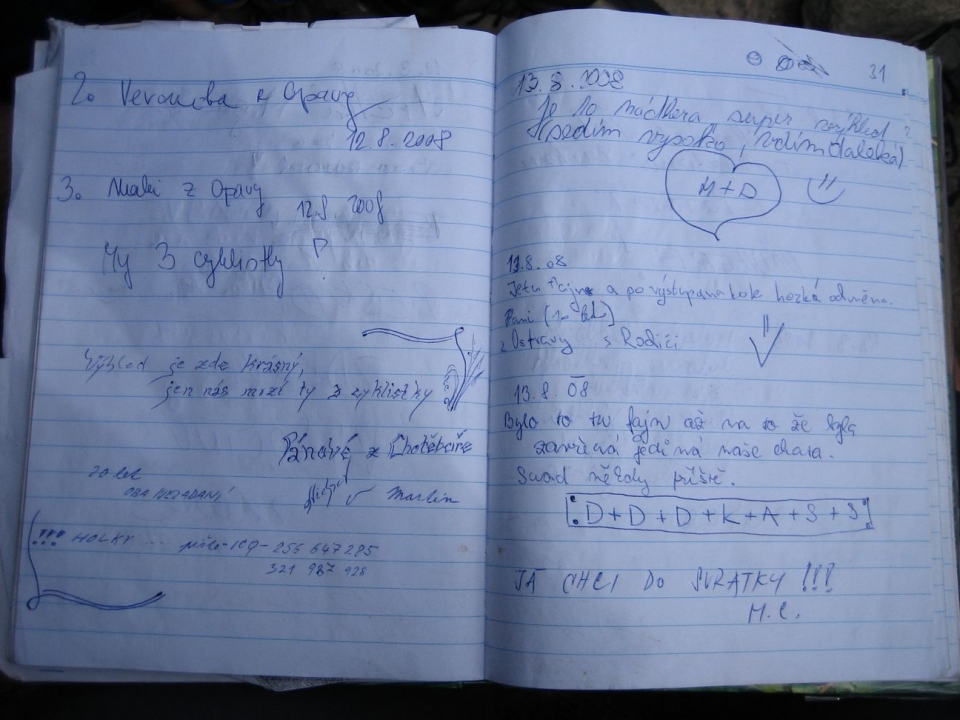 2. Veronika z Opavy
12.8.2008
3. z Opavy
12.8 2008
My 3 cyklistky
Výhled je zde krásný,
jen nás mrzí ty 3 cyklistky
Pánové z Chotěboře
20 let
OBA NEZADANÍ
Martin
!!! HOLKY ... pište - ICQ - 256 647 285
321 987 928
31
13.8.2008
Je to nádhera, super výhled
(sedím vysoko, vidím daleko)
M+D
13.8.08
Je tu a po výstupu na kole hezká odměna.
z Ostravy s Rodiči
13.8.08
Bylo to tu fajn až na to že byla
zavřená jediná naše chata.
Snad někdy příště.
D+D+D+K+A+S+S
JÁ CHCI DO SVRATKY !!!
M.C.